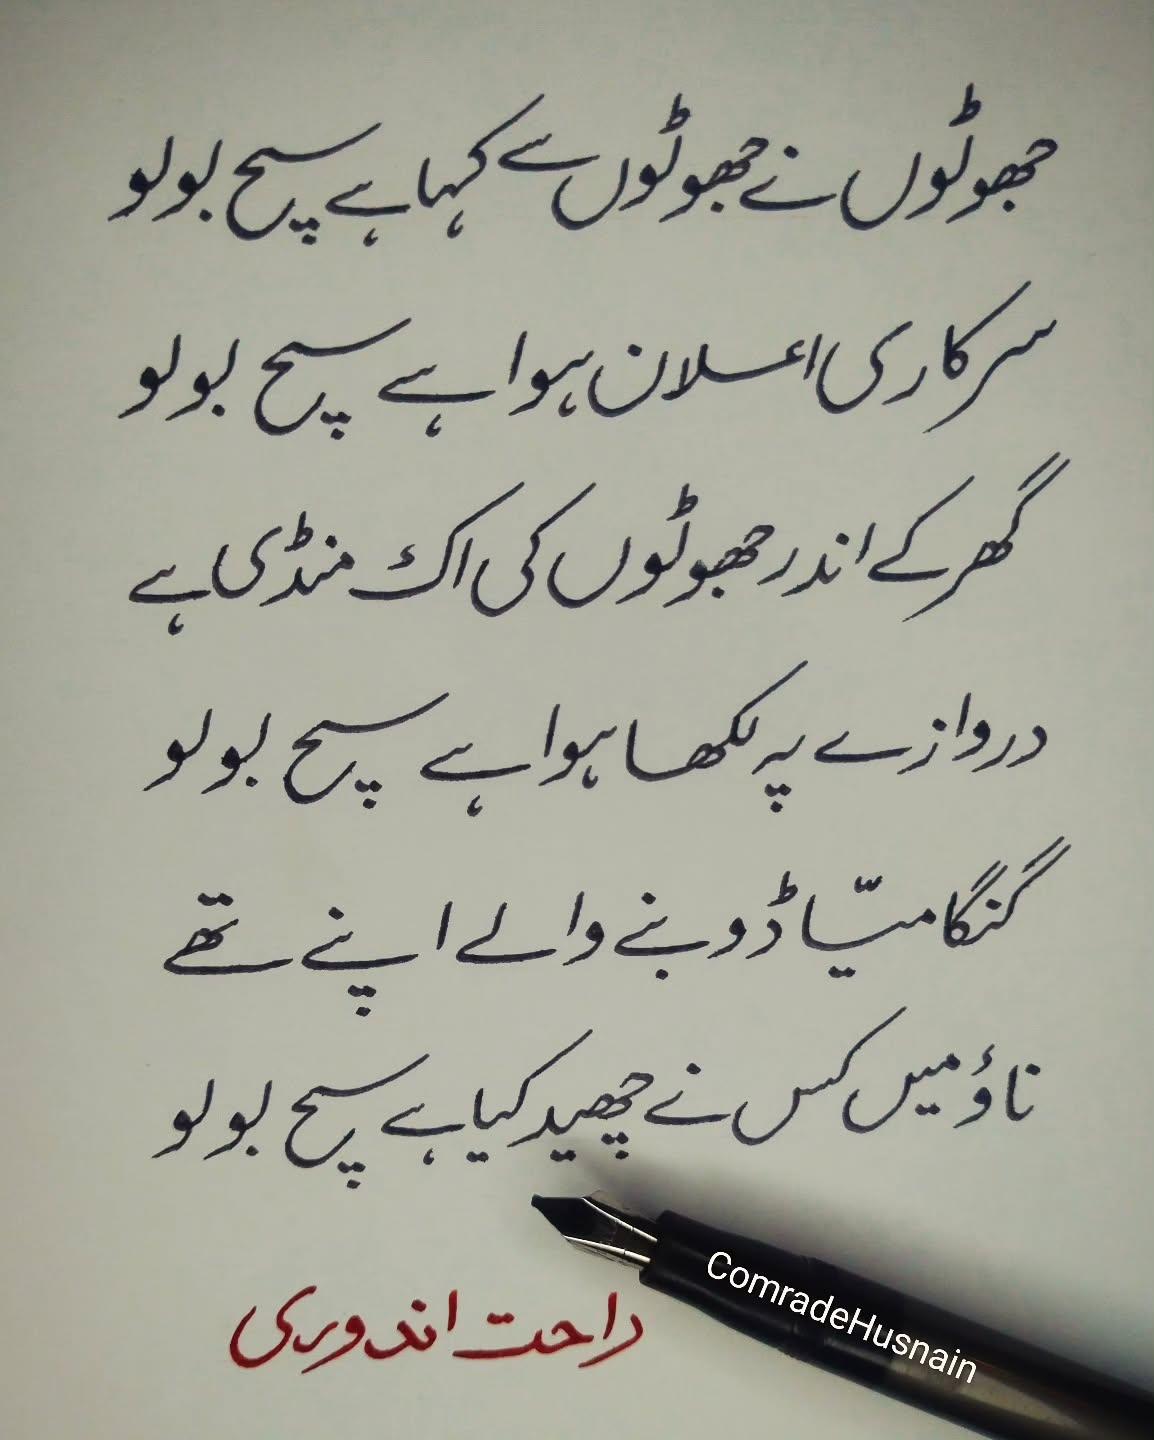 جھوٹوں نے جھوٹوں سے کہا ہے سچ بولو
سرکاری اعلان ہوا ہے سچ بولو
گھر کے اندر جھوٹوں کی اک منڈی ہے
دروازے پہ لکھا ہوا ہے سچ بولو
گنگا میّا ڈوبنے والے اپنے تھے
ناؤ میں کس نے چھید کیا ہے سچ بولو
راحت اندوری
ComradeHusnain